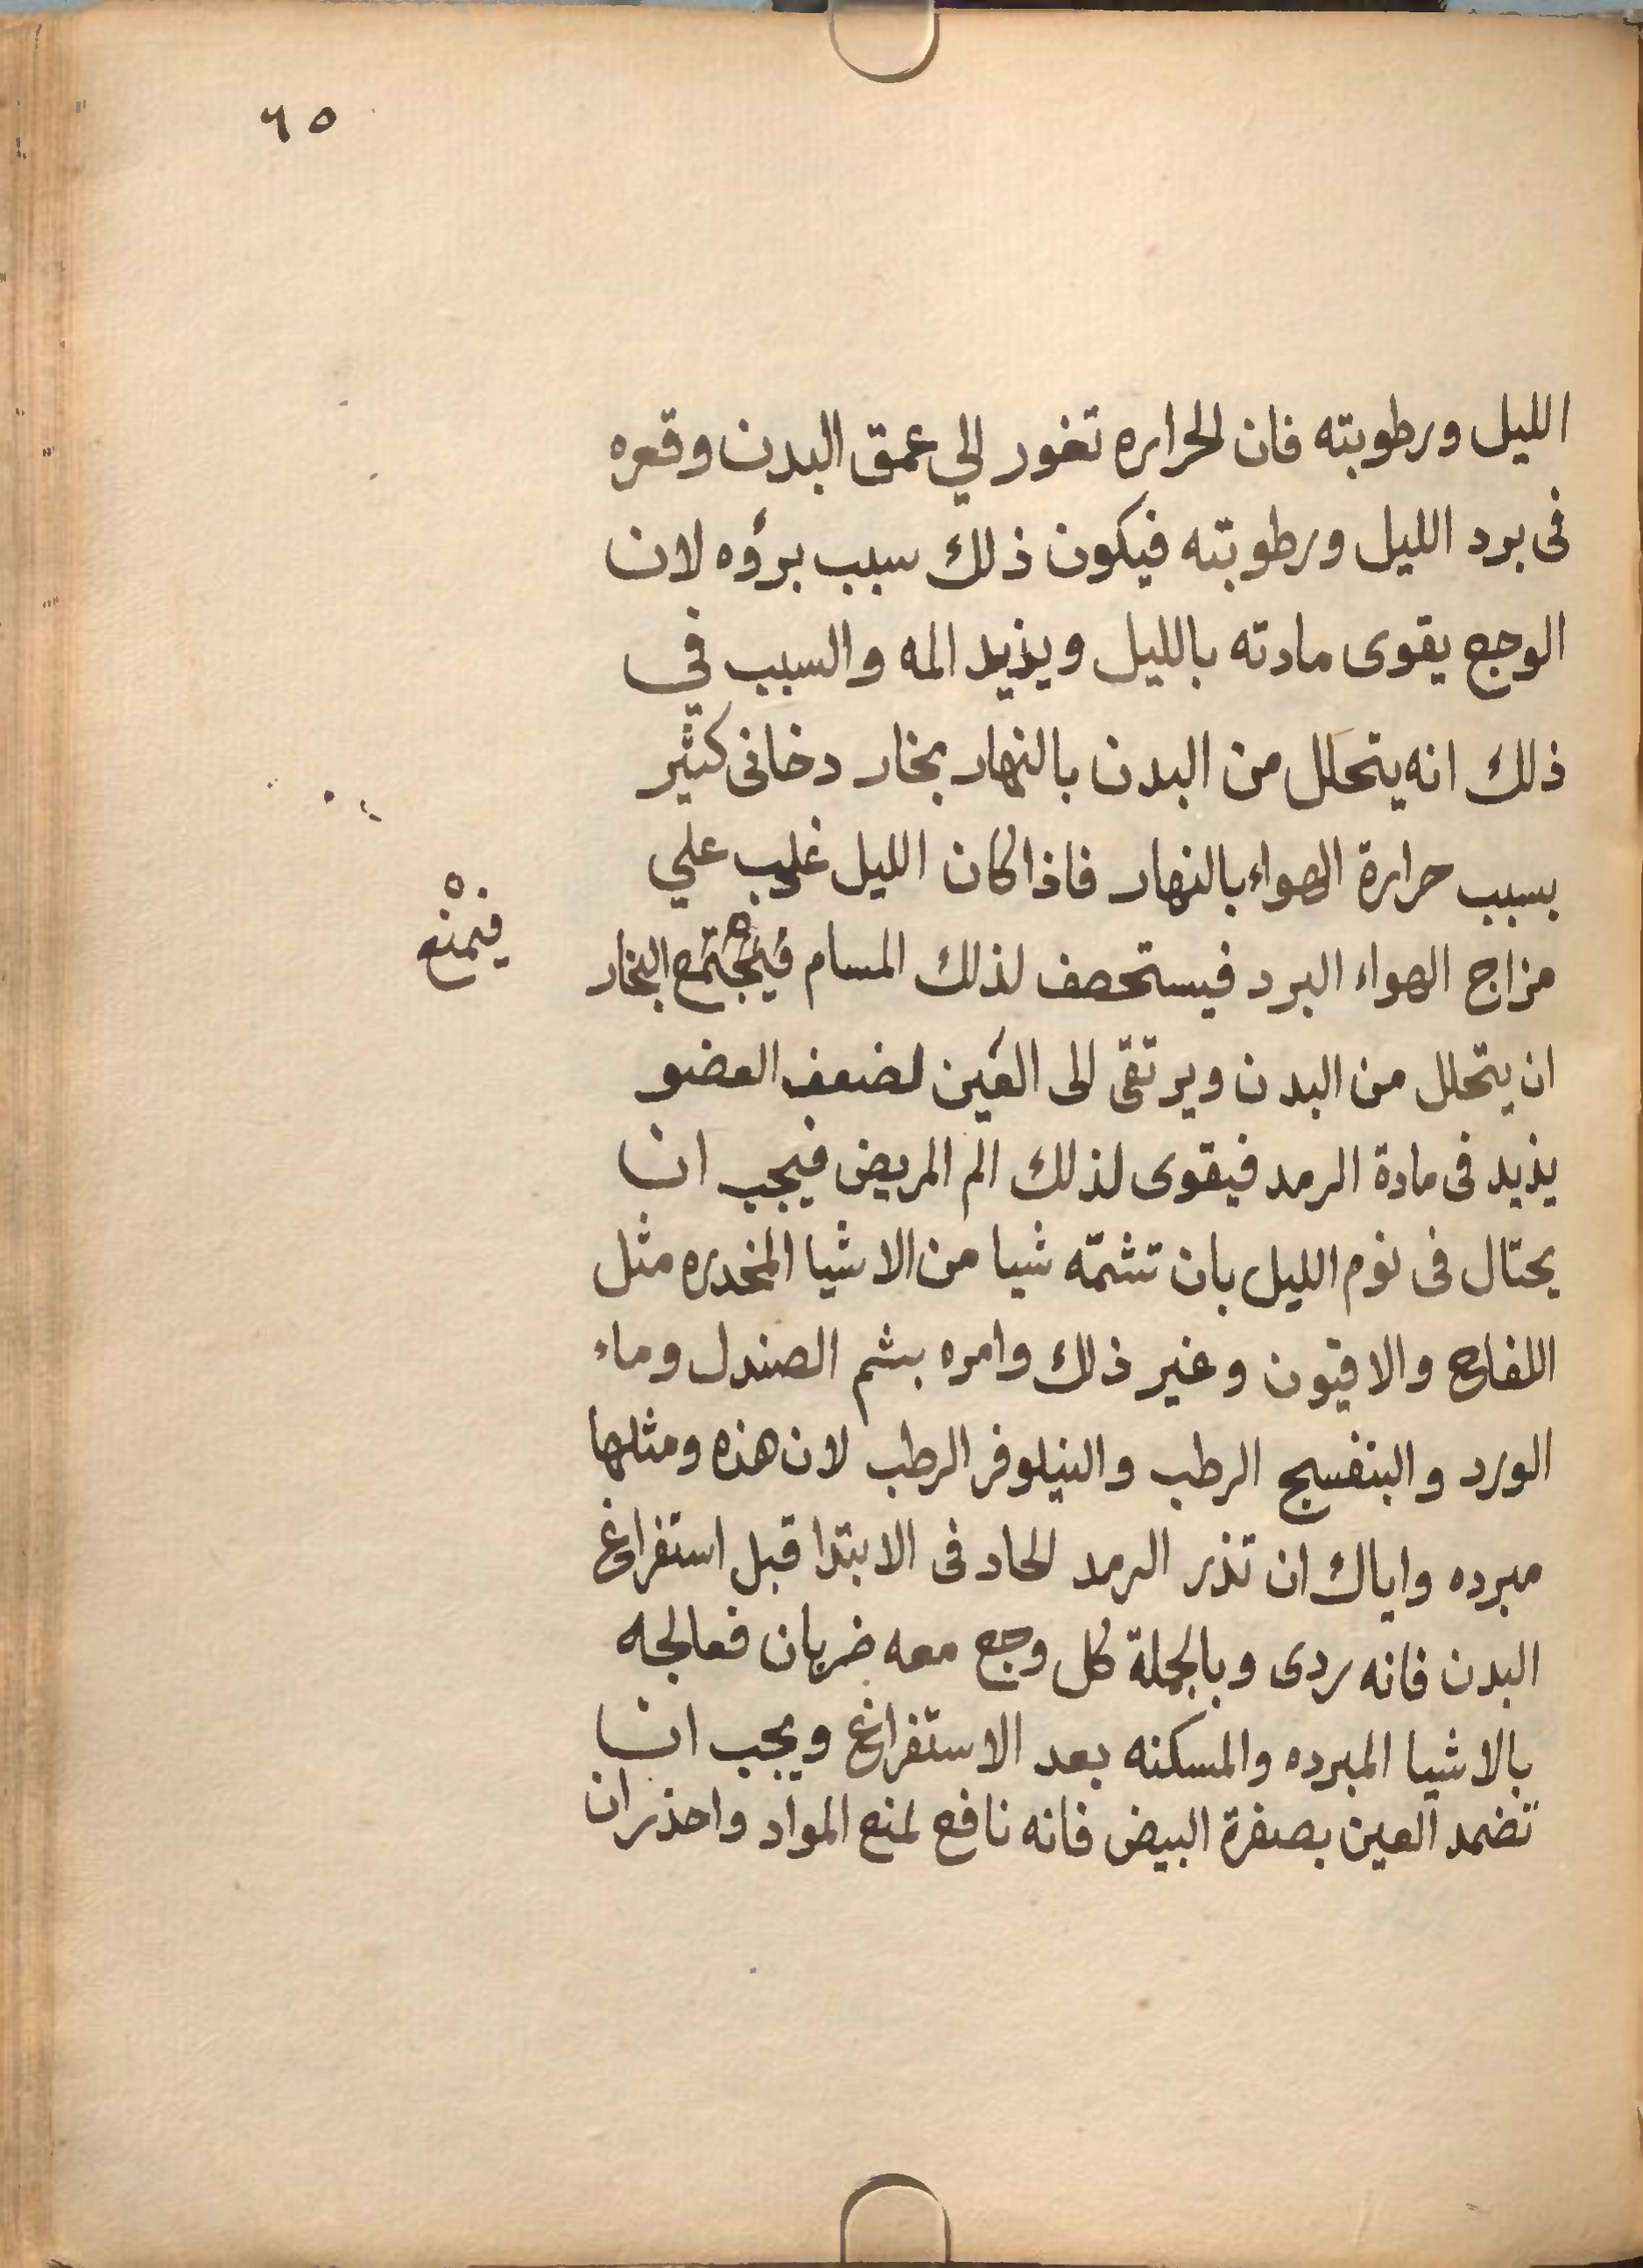 ٦٥
الليل ورطوبته فان الحراره تغور الي عمق البدن وقعره
فى برد الليل ورطوبته فيكون ذلك سبب برؤه لان
الوجع يقوى مادته بالليل ويذيد المه والسبب في
ذلك انه يتحلل من البدن بالنهار بخار دخانى كثير
بسبب حرارة الهواء بالنهار فاذا كان الليل غلب علي
مزاج الهواء البرد فيستحصف لذلك المسام فيجتمع البخار
فيمنع
ان يتحلل من البدن ويرتقى الى العين لضعف العضو
يذيد فى مادة الرمد فيقوى لذلك الم المريض فيجب ان
يحتال فى نوم الليل بان تشمّه شيا من الاشيا المخدره مثل
اللفاح والافيون وغير ذلك وامره بشم الصندل وماء
الورد والبنفسج الرطب والنيلوفر الرطب لان هذه ومثلها
مبرده واياك ان تذر الرمد الحاد فى الابتدا قبل استفراغ
البدن فانه ردى وبالجملة كل وجع معه ضربان فعالجه
بالاشيا المبرده والمسكنه بعد الاستفراغ ويجب ان
تضمد العين بصفرة البيض فانه نافع لمنع المواد واحذر ان